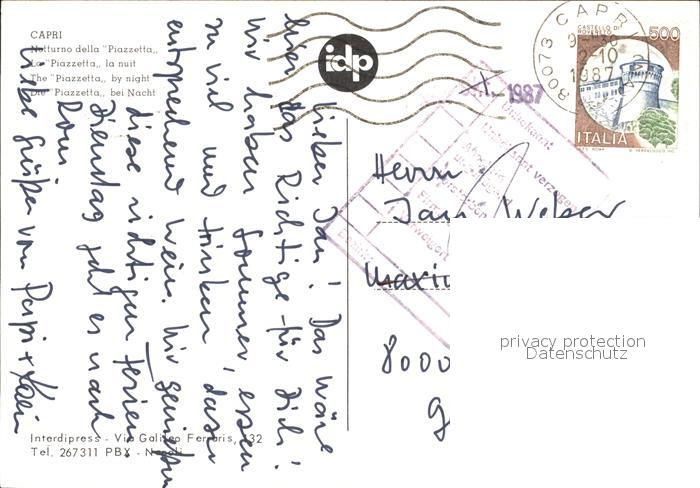 CAPRI
Notturno della "Piazzetta,,
La "Piazzetta,, la nuit
The "Piazzetta,, by night
Die "Piazzetta,, bei Nacht
idp
Lieber Jan! Das wäre
hier das Richtige für Dich!
Wir haben Sommer, essen
zu viel und trinken dazu
entsprechend Wein. Wir genießen
diese richtigen Ferien
Dienstag geht es nach
Rom.
Liebe Grüße von Papi +
Interdipress - Via Galileo Ferraris, 132
Tel. 267311 PBX - Napoli
80073 CAPRI
10
1987
CASTELLO DI
ROVERETO
500
ITALIA
1987
Unbekannt
verzogen
Herrn
Jan Weber
8000
privacy protection
Datenschutz